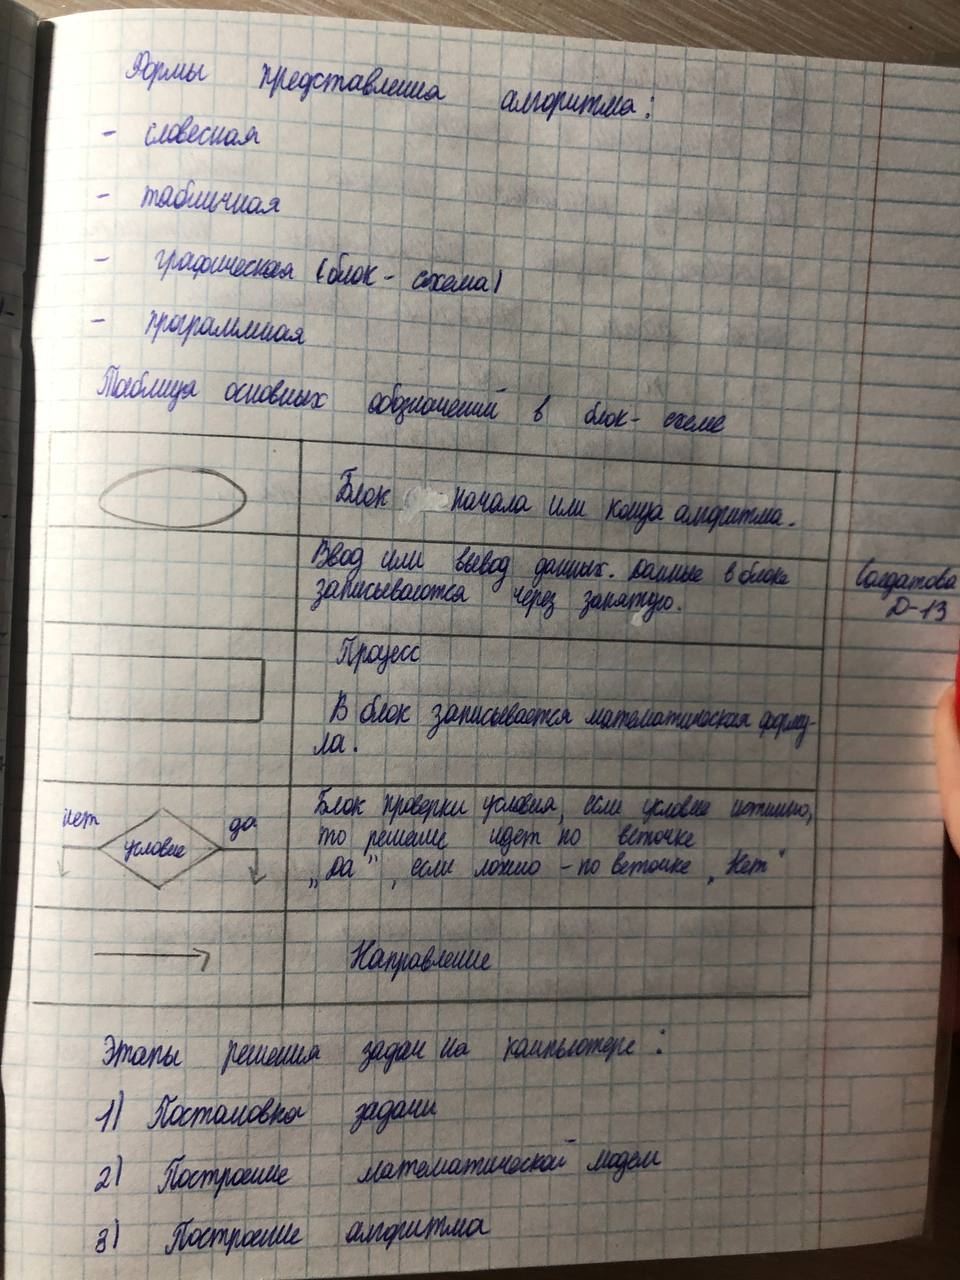 Формы представления алгоритма:
- словесная
- табличная
- графическая (блок - схема)
- программная
Таблица основных обозначений в блок - схеме
Блок начала или конца алгоритма.
Ввод или вывод данных. Данные в блоке
записываются через запятую.
Солдатова
Д-13
Процесс
В блок записывается математическая форму-
ла.
нет
условие
да
Блок проверки условия, если условие истинно,
то решение идет по веточке
„Да", если ложно - по веточке „Нет"
Направление
Этапы решения задач на компьютере:
1) Постановка задачи
2) Построение математической модели
3) Построение алгоритма